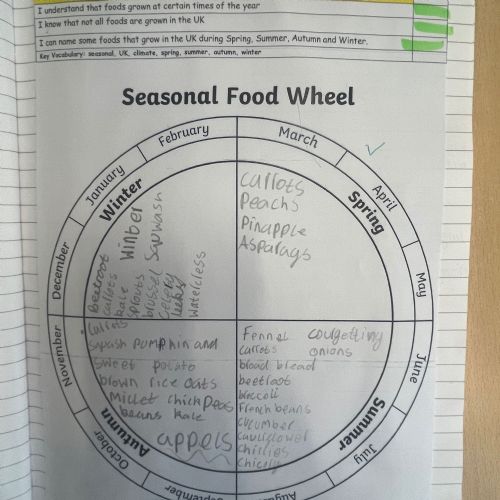 I understand that foods grown at certain times of the year
I know that not all foods are grown in the UK
I can name some foods that grow in the UK during Spring, Summer, Autumn and Winter.
Key Vocabulary: seasonal, UK, climate, spring, summer, autumn, winter
Seasonal Food Wheel
January
February
March
April
May
June
July
August
September
October
November
December
Winter
beetroot
carrots
kale
Winber
sprouts
brussel
Sqwash
Celery
leeks
watercless
Spring
carrots
Peachs
Pinapple
Asparags
Autumn
carrots
sqash pumpkin and
sweet potato
brown rice oats
Millet chick Peas
beans kale
appels
Summer
Fennel courgetting
carrots onions
broad bread
beetroot
broccoli
French beans
cucumber
cauliflower
chillies
chicely